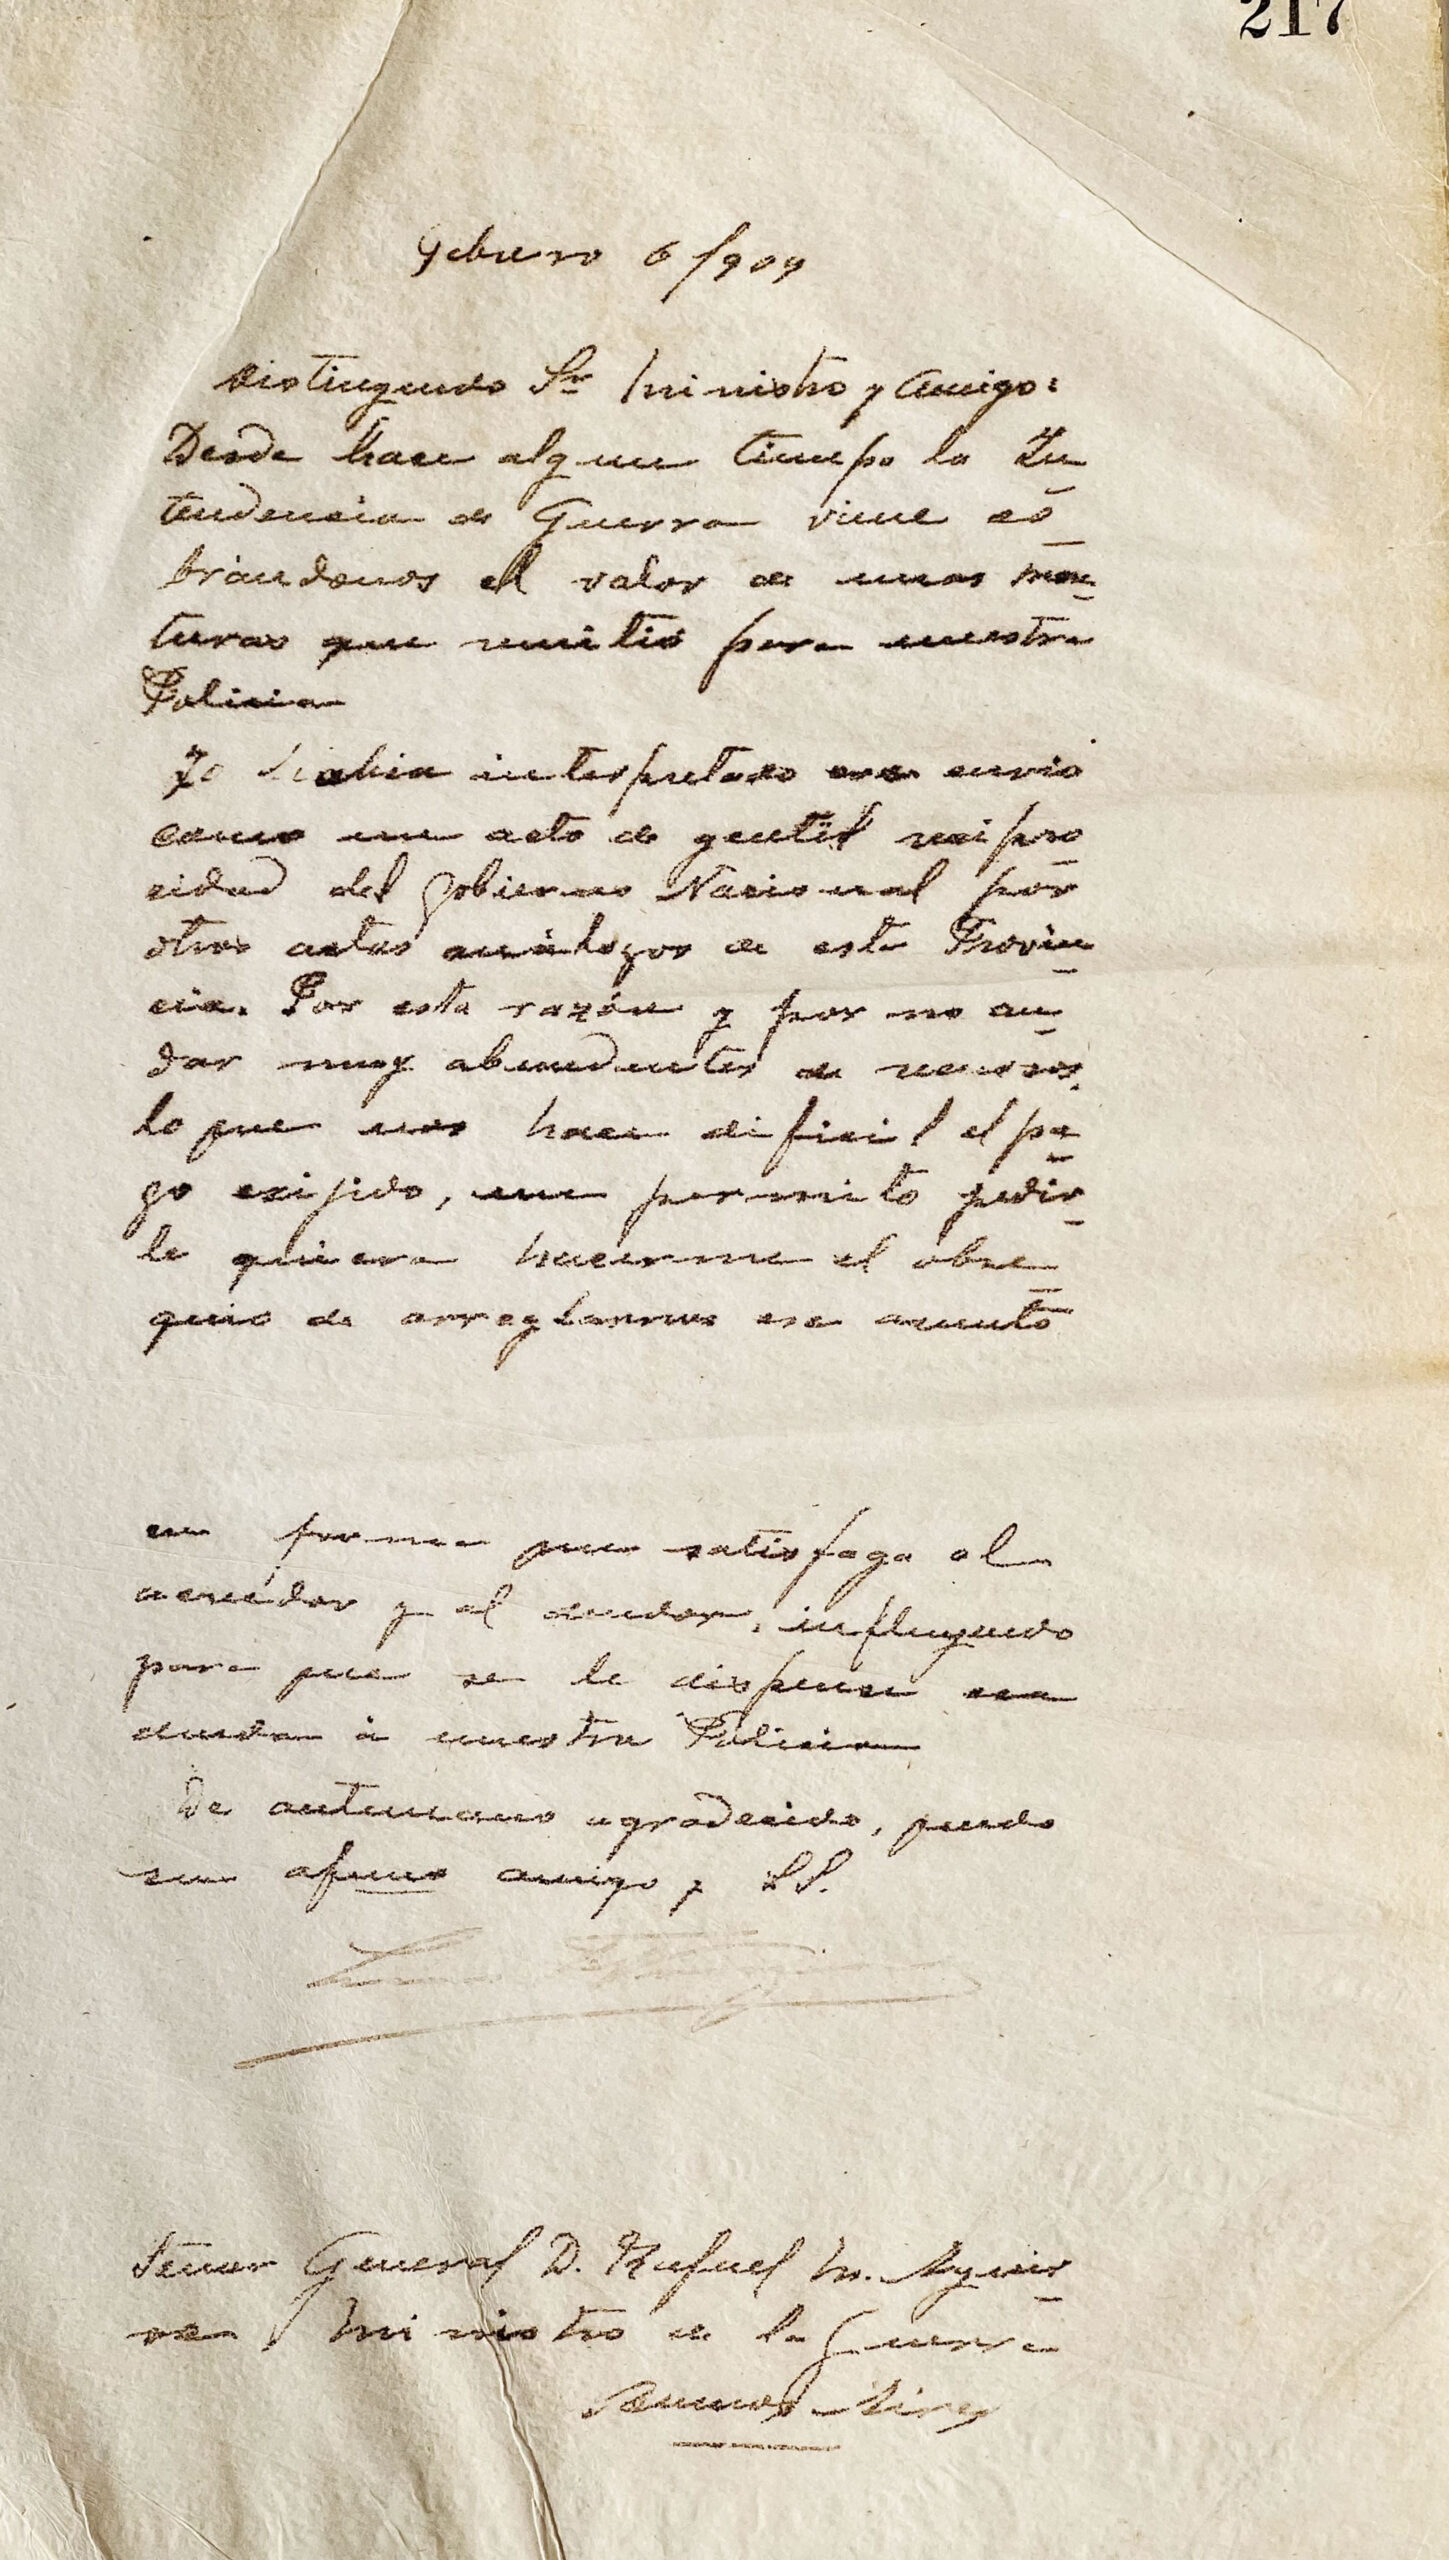 217
Febrero 6/909
Distinguido Sr Ministro y amigo:
Desde hace algun tiempo la In-
tendencia de Guerra viene co-
brándonos el valor de unas mon-
turas que remitió para nuestra
Policia
Yo habia interpretado ese envio
como un acto de gentil recipro-
cidad del Gobierno Nacional por
otros actos análogos de esta Provin-
cia. Por esta razón y por no an-
dar muy abundantes de recursos,
lo que nos hace dificil el pa-
go exijido, me permito pedir-
le quiera hacerme el obse-
quio de arreglarnos ese asunto
en forma que satisfaga al
acreedor y al deudor, influyendo
para que se le dispense esa
deuda á nuestra Policia
De antemano agradecido, quedo
su afmo amigo y S.S.
Señor General D. Rafael M. Aguir-
re Ministro de la Guerra
Buenos Aires